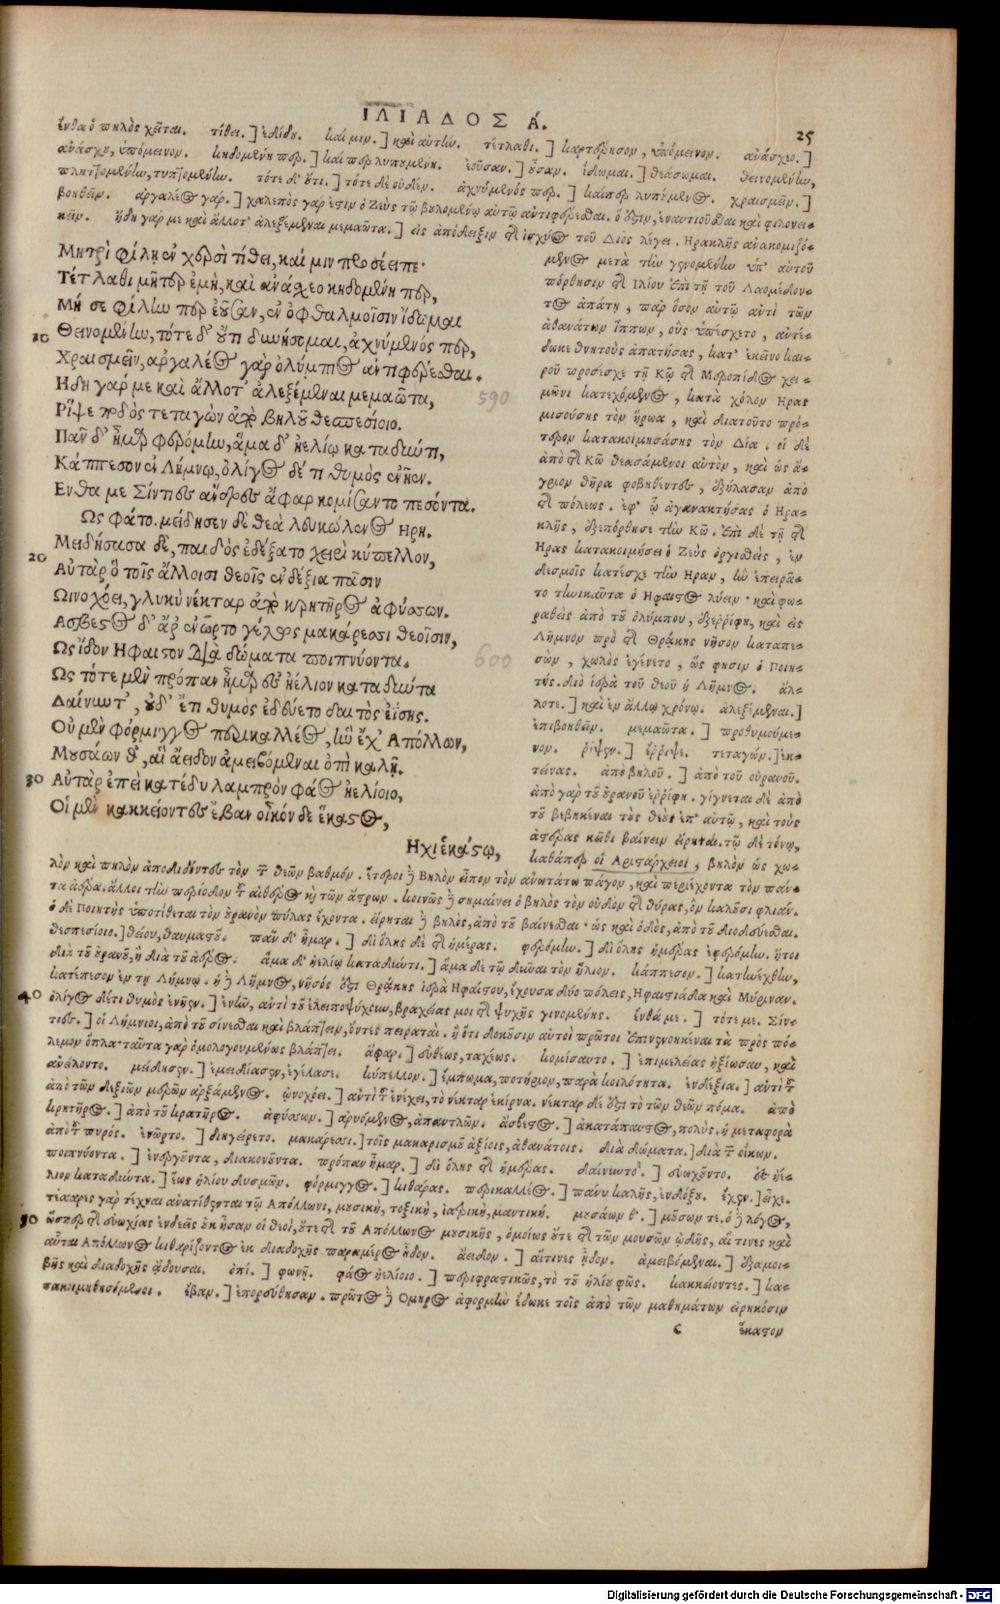 ΙΛΙΑΔΟΣ Α.
25
ἔνθα ὁ πηλὸς χεῖται. τίθει.] ἐδίδου. καί μιν.] καὶ αὐτὴν. τέτλαθι.] καρτέρησον, ὑπόμεινον. ἀνάσχεο.]
ἀνάσχου, ὑπόμεινον. κηδομένη περ.] καί περ λυπουμένη. ἐοῦσαν.] οὖσαν. ἴδωμαι.] θεάσωμαι. θεινομένην,
πληττομένην, τυπτομένην. τότε δ' οὔτι.] τότε δὲ οὐδέν. ἀχνύμενός περ.] καίπερ λυπούμενος. χραισμεῖν.]
βοηθεῖν. ἀργαλέος γάρ.] χαλεπὸς γάρ ἐστιν ὁ Ζεὺς τῷ βουλομένῳ αὐτῷ ἀντιφέρεσθαι. ὅ ἐστιν, ἐναντιοῦσθαι καὶ φιλονει-
κεῖν. ἤδη γάρ με καὶ ἄλλοτ' ἀλεξέμεναι μεμαῶτα.] εἰς ἀπόδειξιν τῆς ἰσχύος τοῦ Διὸς λέγει. Ἡρακλῆς ἀνακομιζό-
Μητρὶ φίλῃ ἐν χερσὶ τίθει, καί μιν προσέειπε·
Τέτλαθι μῆτερ ἐμὴ, καὶ ἀνάσχεο κηδομένη περ,
Μή σε φίλην περ ἐοῦσαν, ἐν ὀφθαλμοῖσιν ἴδωμαι
10 Θεινομένην, τότε δ' οὔτι δυνήσομαι, ἀχνύμενός περ,
Χραισμεῖν, ἀργαλέος γὰρ ὀλύμπιος ἀντιφέρεσθαι.
Ηδη γάρ με καὶ ἄλλοτ' ἀλεξέμεναι μεμαῶτα,
590
Ρίψε ποδὸς τεταγὼν ἀπὸ βηλοῦ θεσπεσίοιο.
Πᾶν δ' ἦμαρ φερόμην, ἅμα δ' ἠελίῳ καταδύντι,
Κάππεσον ἐν Λήμνῳ, ὀλίγος δέ τι θυμὸς ἐνῆεν.
Ενθα με Σίντιες ἄνδρες ἄφαρ κομίσαντο πεσόντα.
Ως φάτο. μείδησεν δὲ θεὰ λευκώλενος Ηρη.
Μειδήσασα δὲ, παιδὸς ἐδέξατο χειρὶ κύπελλον,
20 Αὐτὰρ ὃ τοῖς ἄλλοισι θεοῖς ἐνδέξια πᾶσιν
Ωινοχόει, γλυκὺ νέκταρ ἀπὸ κρητῆρος ἀφύσσων.
Ασβεστος δ' ἄρ' ἐνῶρτο γέλως μακάρεσσι θεοῖσιν,
Ως ἴδον Ηφαιστον διὰ δώματα ποιπνύοντα.
600
Ως τότε μὲν πρόπαν ἦμαρ ἐς ἠέλιον καταδύντα
Δαίνυντ', οὐδ' ἔτι θυμὸς ἐδεύετο δαιτὸς ἐΐσης.
Οὐ μὲν φόρμιγγος περικαλλέος, ἣν ἔχ' Απόλλων,
Μουσάων θ', αἳ ἄειδον ἀμειβόμεναι ὀπὶ καλῇ.
30 Αὐτὰρ ἐπεὶ κατέδυ λαμπρὸν φάος ἠελίοιο,
Οἱ μὲν κακκείοντες ἔβαν οἶκόνδε ἕκαστος,
Ηχι ἑκάστῳ,
μενος μετὰ τὴν γενομένην ὑπ' αὐτοῦ
πόρθησιν τῆς Ιλίου ἐπὶ τῇ τοῦ Λαομέδον-
τος ἀπάτῃ, παρ' ὅσον αὐτῷ ἀντὶ τῶν
ἀθανάτων ἵππων, οὓς ὑπέσχετο, αὐτὸς
δέδωκε θνητοὺς ἀπατήσας, κατ' ἐκεῖνο και-
ροῦ προσέσχε τῇ Κῷ τῆς Μεροπίδος χει-
μῶνι κατεχόμενος, κατὰ χόλον Ηρας
μισούσης τὸν ἥρωα, καὶ διὰ τοῦτο πρό-
τερον κατακοιμησάσης τὸν Δία. οἱ δὲ
ἀπὸ τῆς Κῶ θεασάμενοι αὐτὸν, καὶ ὡς ἄ-
γριον θῆρα φοβηθέντες, ἐξήλασαν ἀπὸ
τῆς πόλεως. ἐφ' ᾧ ἀγανακτήσας ὁ Ηρα-
κλῆς, ἐξεπόρθησε τὴν Κῶ. ἐπὶ δὲ τῇ τῆς
Ηρας κατακοιμήσει ὁ Ζεὺς ὀργισθεὶς, ἐν
δεσμοῖς κατέσχε τὴν Ηραν, ἣν ἐπειρᾶ-
το τηνικαῦτα ὁ Ηφαιστος λύειν· καὶ φω-
ραθεὶς ἀπὸ τοῦ ὀλύμπου, ἐξερρίφη, καὶ εἰς
Λῆμνον πρὸ τῆς Θρᾴκης νῆσον καταπε-
σὼν, χωλὸς ἐγένετο, ὥς φησιν ὁ ποιη-
τής. διὸ ἱερὰ τοῦ θεοῦ ἡ Λῆμνος. ἄλ-
λοτε.] καὶ ἐν ἄλλῳ χρόνῳ. ἀλεξέμεναι.]
ἐπιβοηθεῖν. μεμαῶτα.] προθυμούμε-
νον. ῥίψεν.] ἔρριψε. τεταγών.] ἐκ-
τείνας. ἀπὸ βηλοῦ.] ἀπὸ τοῦ οὐρανοῦ.
ἀπὸ γὰρ τοῦ οὐρανοῦ ἐρρίφη. γίγνεται δὲ ἀπὸ
τοῦ βεβηκέναι τοὺς θεοὺς ἐπ' αὐτῷ, καὶ τοὺς
ἀστέρας κεῖθι βαίνειν εἴρηται. τῷ δὲ τόνῳ,
καθάπερ οἱ Αριστάρχειοι, βηλὸν ὡς χω-
λὸν καὶ πηλὸν ἀποδιδόντες τὸν τῶν θεῶν βαθμόν. ἕτεροι δὲ Βηλὸν εἶπον τὸν ἀνωτάτω πάγον, καὶ περιέχοντα τὸν πάν-
τα ἀέρα. ἄλλοι τὴν περίοδον τοῦ αἰθέρος καὶ τῶν ἄστρων. κοινῶς δὲ σημαίνει ὁ βηλὸς τὸν οὐδὸν τῆς θύρας, ὃν καλοῦσι φλιάν.
ὁ δὲ Ποιητὴς ὑποτίθεται τὸν οὐρανὸν πύλας ἔχοντα. εἴρηται δὲ βηλὸς, ἀπὸ τοῦ βαίνεσθαι· ὡς καὶ ὁδὸς, ἀπὸ τοῦ διοδεύεσθαι.
θεσπεσίοιο.] θείου, θαυμαστοῦ. πᾶν δ' ἦμαρ.] δι' ὅλης δὲ τῆς ἡμέρας. φερόμην.] δι' ὅλης ἡμέρας ἐφερόμην. ἤτοι
διὰ τοῦ οὐρανοῦ, ἢ διὰ τοῦ ἀέρος. ἅμα δ' ἠελίῳ καταδύντι.] ἅμα δὲ τῷ δῦναι τὸν ἥλιον. κάππεσον.] κατηνέχθην,
κατέπεσον ἐν τῇ Λήμνῳ. ἡ δὲ Λῆμνος, νῆσός ἐστι Θρᾴκης ἱερὰ Ηφαίστου, ἔχουσα δύο πόλεις, Ηφαιστιάδα καὶ Μύριναν.
40 ὀλίγος δέ τι θυμὸς ἐνῆεν.] ἐνῆν, ἀντὶ τοῦ ἐλειποψύχουν, βραχείας μοι τῆς ψυχῆς γινομένης. ἔνθά με.] τότε με. Σίν-
τιες.] οἱ Λήμνιοι, ἀπὸ τοῦ σίνεσθαι καὶ βλάπτειν, ὄντες πειραταί. ἢ ὅτι δοκοῦσιν αὐτοὶ πρῶτοι ἐπινενοηκέναι τὰ πρὸς πό-
λεμον ὅπλα· ταῦτα γὰρ ὁμολογουμένως βλάπτει. ἄφαρ.] εὐθέως, ταχέως. κομίσαντο.] ἐπιμελείας ἠξίωσαν, καὶ
ἀνείλοντο. μείδησεν.] ἐμειδίασεν, ἐγέλασε. κύπελλον.] ἔκπωμα, ποτήριον, παρὰ κοιλότητα. ἐνδέξια.] ἀντὶ τοῦ
ἀπὸ τῶν δεξιῶν μερῶν ἀρξάμενος. ᾠνοχόει.] ἀντὶ τοῦ ἐνέχει, τὸ νέκταρ ἐκίρνα. νέκταρ δέ ἐστι τὸ τῶν θεῶν πόμα. ἀπὸ
κρητῆρος.] ἀπὸ τοῦ κρατῆρος. ἀφύσσων.] ἀρυόμενος, ἀπαντλῶν. ἄσβεστος.] ἀκατάπαυστος, πολύς. ἡ μεταφορὰ
ἀπὸ τοῦ πυρός. ἐνῶρτο.] διηγείρετο. μακάρεσσι.] τοῖς μακαρισμοῦ ἀξίοις, ἀθανάτοις. διὰ δώματα.] διὰ τῶν οἴκων.
ποιπνύοντα.] ἐνεργοῦντα, διακονοῦντα. πρόπαν ἦμαρ.] δι' ὅλης τῆς ἡμέρας. δαίνυντο.] εὐωχοῦντο. ἐς ἠέ-
λιον καταδύντα.] ἕως ἡλίου δυσμῶν. φόρμιγγος.] κιθάρας. περικαλλέος.] πάνυ καλῆς, ἐνδόξου. ἔχεν.] εἶχε.
τέσσαρες γὰρ τέχναι ἀνατίθενται τῷ Απόλλωνι, μουσικὴ, τοξικὴ, ἰατρικὴ, μαντική. μουσάων θ'.] μουσῶν τε. ὁ δὲ λόγος,
50 ὥσπερ τῆς εὐωχίας ἐνδεεῖς οὐκ ἦσαν οἱ θεοὶ, οὔτε τῆς τοῦ Απόλλωνος μουσικῆς, ὁμοίως οὔτε τῆς τῶν μουσῶν ᾠδῆς, αἵ τινες καὶ
αὗται Απόλλωνος κιθαρίζοντος ἐκ διαδοχῆς παραμέρος ᾖδον. ἄειδον.] αἵτινες ᾖδον. ἀμειβόμεναι.] ἐξ ἀμοι-
βῆς καὶ διαδοχῆς ᾄδουσαι. ὀπί.] φωνῇ. φάος ἠελίοιο.] περιφραστικῶς, τὸ τοῦ ἡλίου φῶς. κακκείοντες.] κα-
τακοιμηθησόμενοι. ἔβαν.] ἐπορεύθησαν. πρῶτος δὲ Ομηρος ἀφορμὴν ἔδωκε τοῖς ἀπὸ τῶν μαθημάτων εἰρηκόσιν
c ἕκαστον
Digitalisierung gefördert durch die Deutsche Forschungsgemeinschaft - DFG